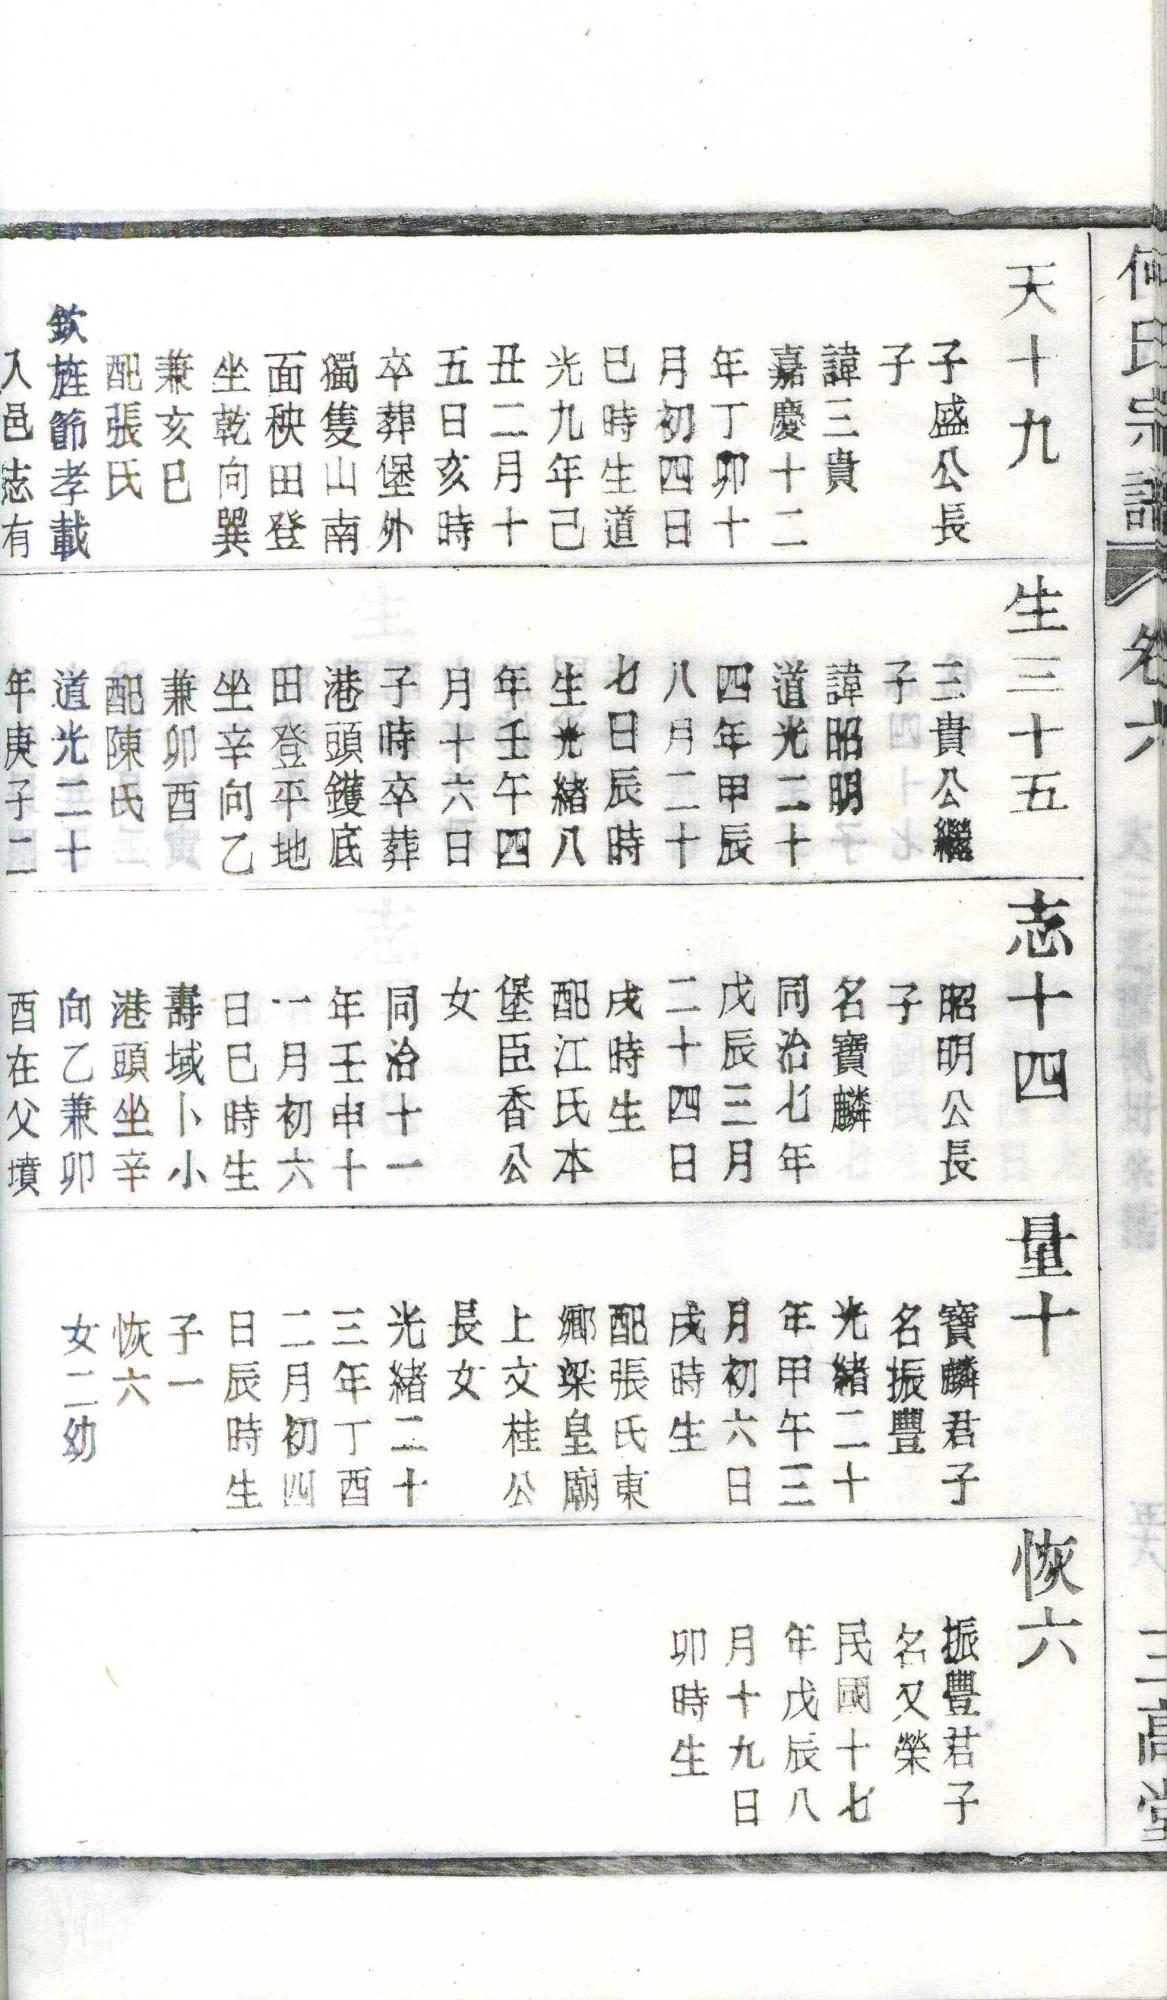 何氏宗譜
卷六
三高堂
天十九
子盛公長
子
諱三貴
嘉慶十二
年丁卯十
月初四日
巳時生道
光九年己
丑二月十
五日亥時
卒葬堡外
獨隻山南
面秧田登
坐乾向巽
兼亥巳
配張氏
欽旌節孝載
入邑志有
生三十五
三貴公繼
子
諱昭明
道光二十
四年甲辰
八月二十
七日辰時
生光緒八
年壬午四
月十六日
子時卒葬
港頭鑊底
田登平地
坐辛向乙
兼卯酉
配陳氏
道光二十
年庚子二
志十四
昭明公長
子
名寶麟
同治七年
戊辰三月
二十四日
戌時生
配江氏本
堡臣香公
女
同治十一
年壬申十
一月初六
日巳時生
壽域卜小
港頭坐辛
向乙兼卯
酉在父墳
量十
寶麟君子
名振豐
光緒二十
年甲午三
月初六日
戌時生
配張氏東
鄉梁皇廟
上文桂公
長女
光緒二十
三年丁酉
二月初四
日辰時生
子一
恢六
女二幼
恢六
振豐君子
名又榮
民國十七
年戊辰八
月十九日
卯時生